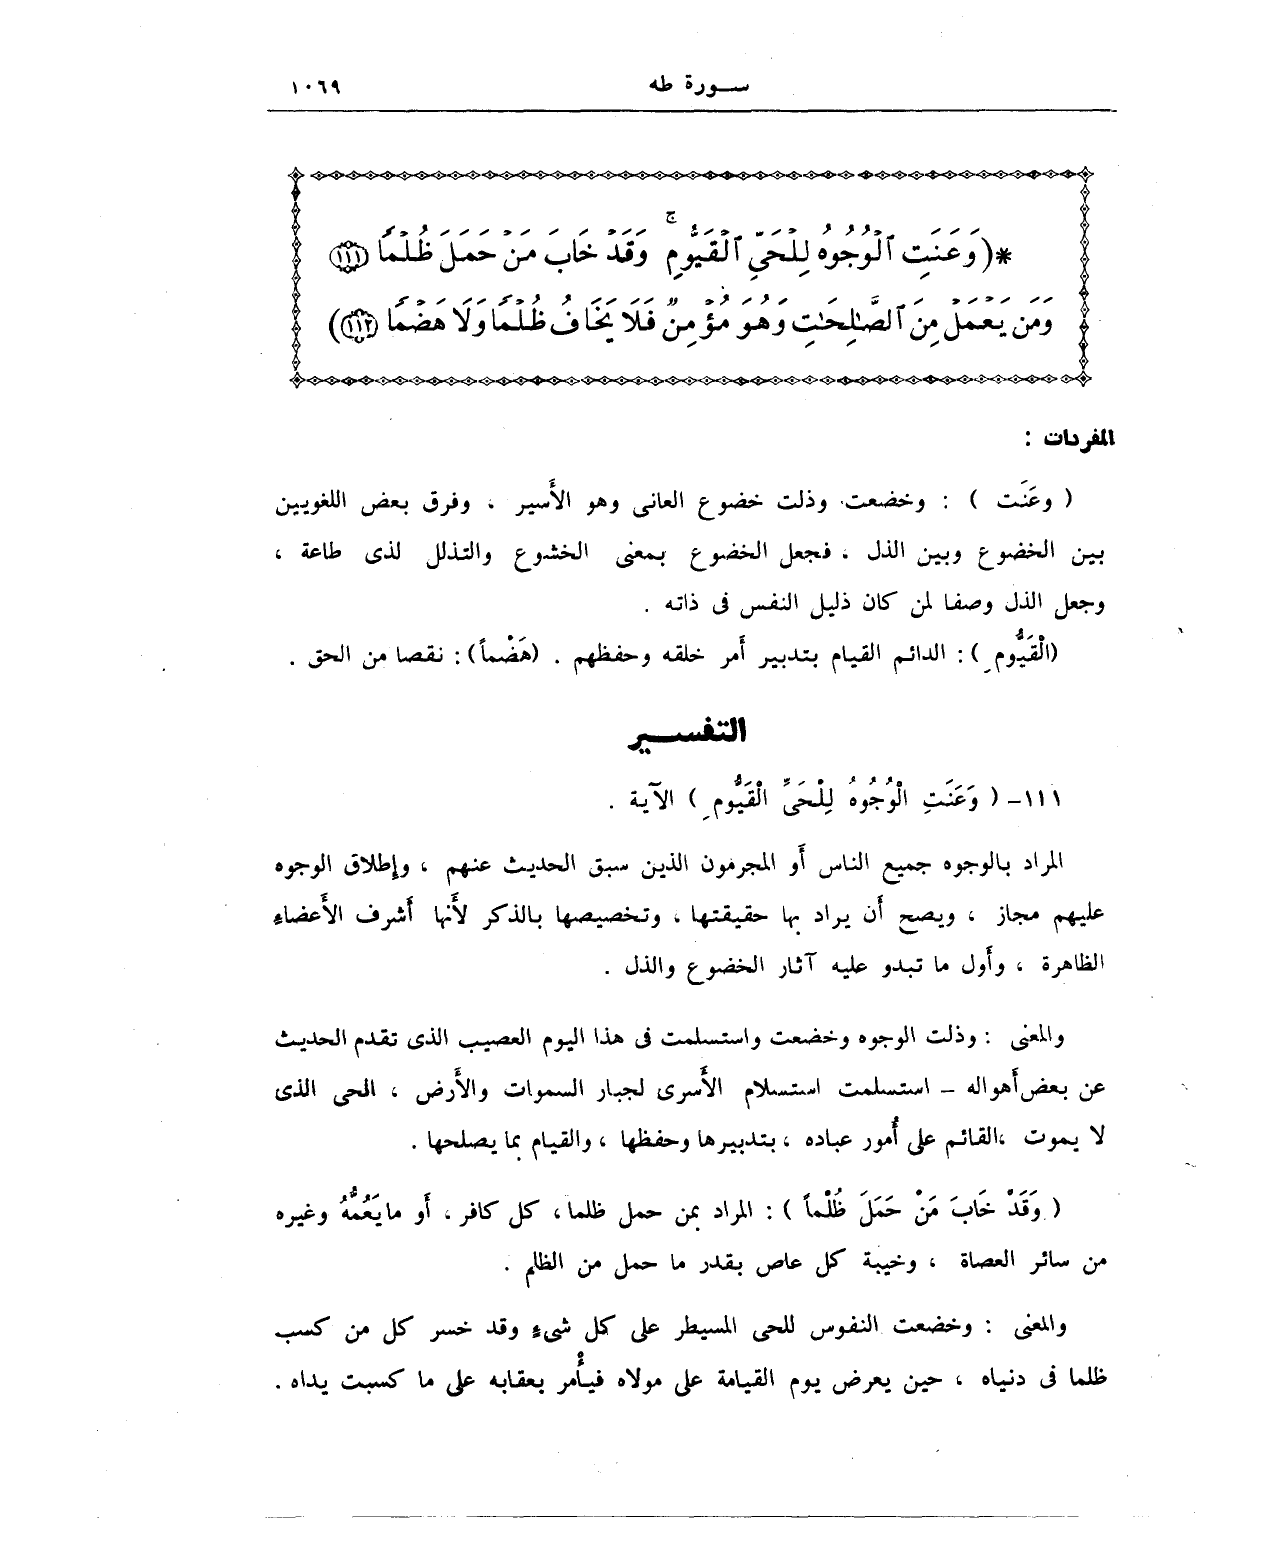 سورة طه ١٠٦٩
*(وَعَنَتِ ٱلْوُجُوهُ لِلْحَيِّ ٱلْقَيُّومِ ۚ وَقَدْ خَابَ مَنْ حَمَلَ ظُلْمًا (١١١)
وَمَن يَعْمَلْ مِنَ ٱلصَّٰلِحَٰتِ وَهُوَ مُؤْمِنٌ فَلَا يَخَافُ ظُلْمًا وَلَا هَضْمًا (١١٢))
المفردات :
( وعَنَت ) : وخضعت وذلت خضوع العانى وهو الأَسير ، وفرق بعض اللغويين
بين الخضوع وبين الذل ، فجعل الخضوع بمعنى الخشوع والتذلل لذى طاعة ،
وجعل الذل وصفا لمن كان ذليل النفس فى ذاته .
(الْقَيُّومِ ) : الدائم القيام بتدبير أَمر خلقه وحفظهم . (هَضْماً) : نقصا من الحق .
التفسير
١١١- ( وَعَنَتِ الْوُجُوهُ لِلْحَىِّ الْقَيُّومِ ) الآية .
المراد بالوجوه جميع الناس أَو المجرمون الذين سبق الحديث عنهم ، وإطلاق الوجوه
عليهم مجاز ، ويصح أَن يراد بها حقيقتها ، وتخصيصها بالذكر لأَنها أَشرف الأَعضاء
الظاهرة ، وأَول ما تبدو عليه آثار الخضوع والذل .
والمعنى : وذلت الوجوه وخضعت واستسلمت فى هذا اليوم العصيب الذى تقدم الحديث
عن بعض أَهواله - استسلمت استسلام الأَسرى لجبار السموات والأَرض ، الحى الذى
لا يموت ، القائم على أُمور عباده ، بتدبيرها وحفظها ، والقيام بما يصلحها .
( وَقَدْ خَابَ مَنْ حَمَلَ ظُلْماً ) : المراد بمن حمل ظلما ، كل كافر ، أَو ما يَعُمُّهُ وغيره
من سائر العصاة ، وخيبة كل عاص بقدر ما حمل من الظلم .
والمعنى : وخضعت النفوس للحى المسيطر على كل شىءٍ وقد خسر كل من كسب
ظلما فى دنياه ، حين يعرض يوم القيامة على مولاه فيأْمر بعقابه على ما كسبت يداه .